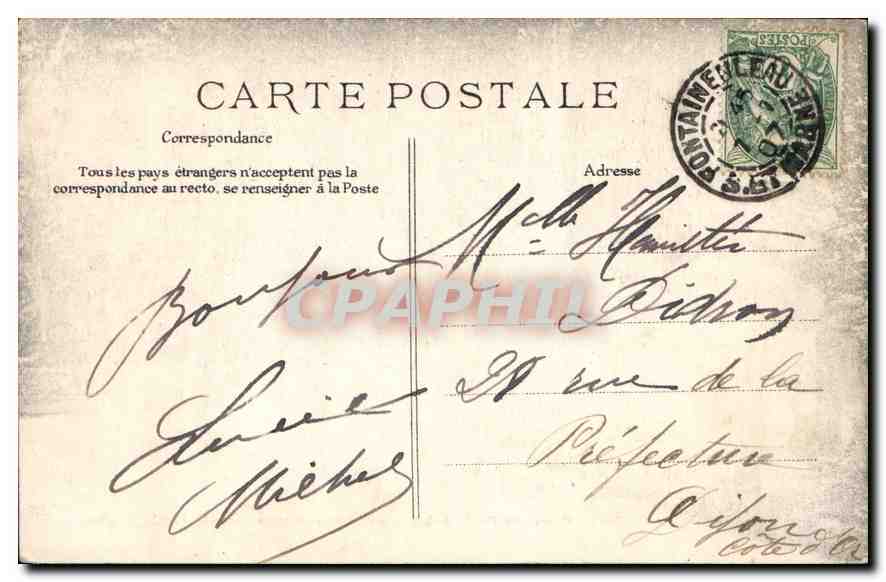 CARTE POSTALE
Correspondance
Tous les pays étrangers n'acceptent pas la
correspondance au recto, se renseigner à la Poste
Adresse
FONTAINEBLEAU
S.ET MARNE
07
POSTES
Bonjour
Lucie
Michel
Melle
Didron
28 rue de la
Préfecture
Dijon
Côte d'Or
CPAPHIL